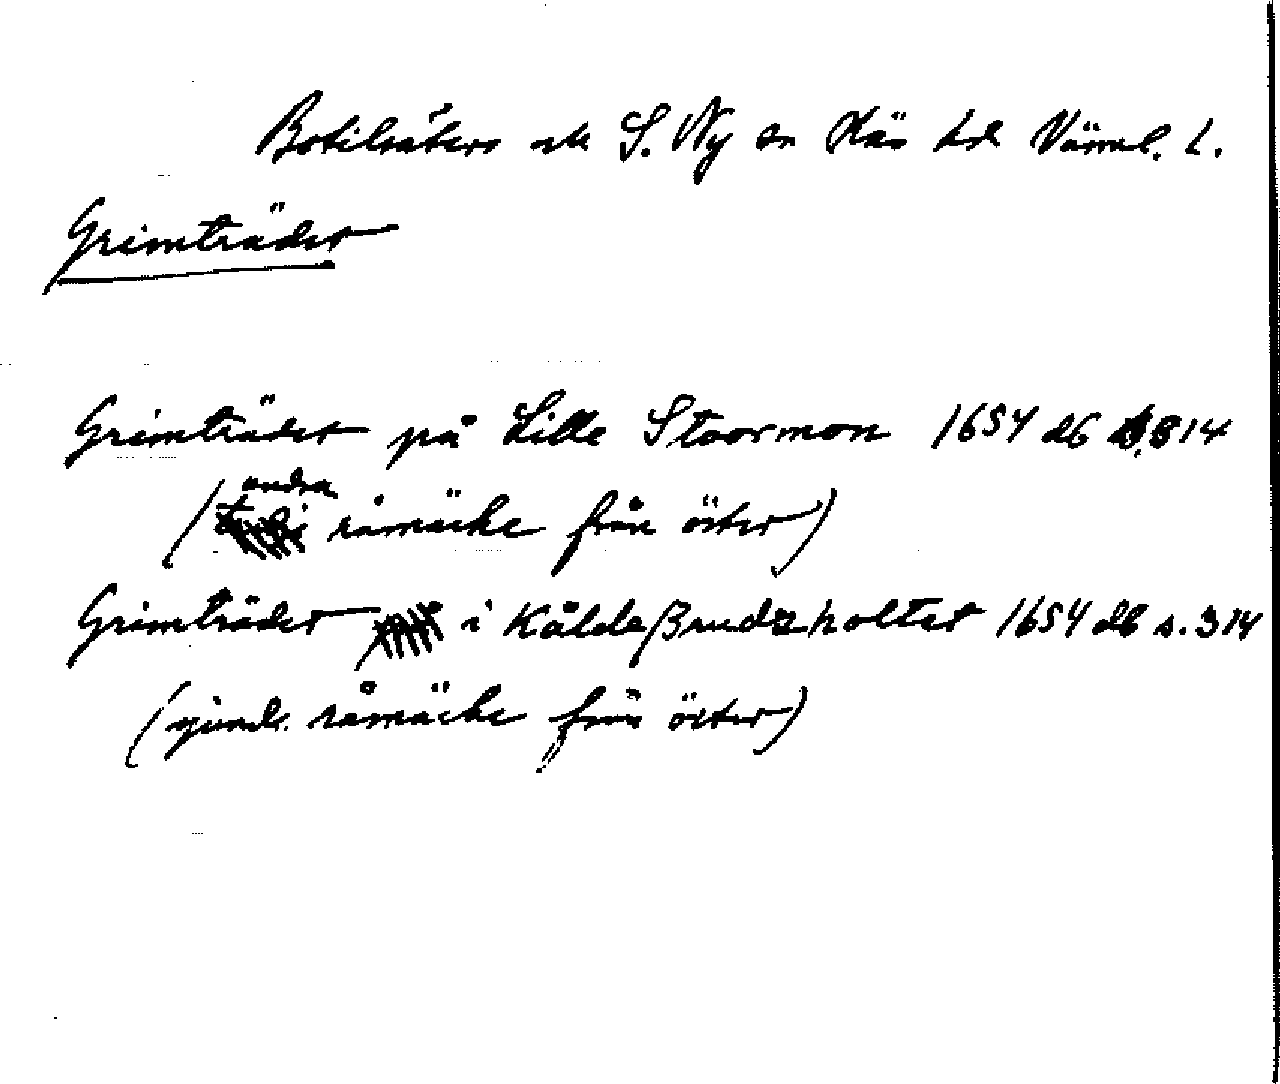 Botilsäters sk S. Ny sn Näs hd Värml. l.
Grimträdet
Grimträdet på Lille Stoormon 1654 db s. 314
(andra råmäcke från öster)
Grimträdet i Kålde Brudzholtet 1654 db s. 314
(sjunde råmäcke från öster)